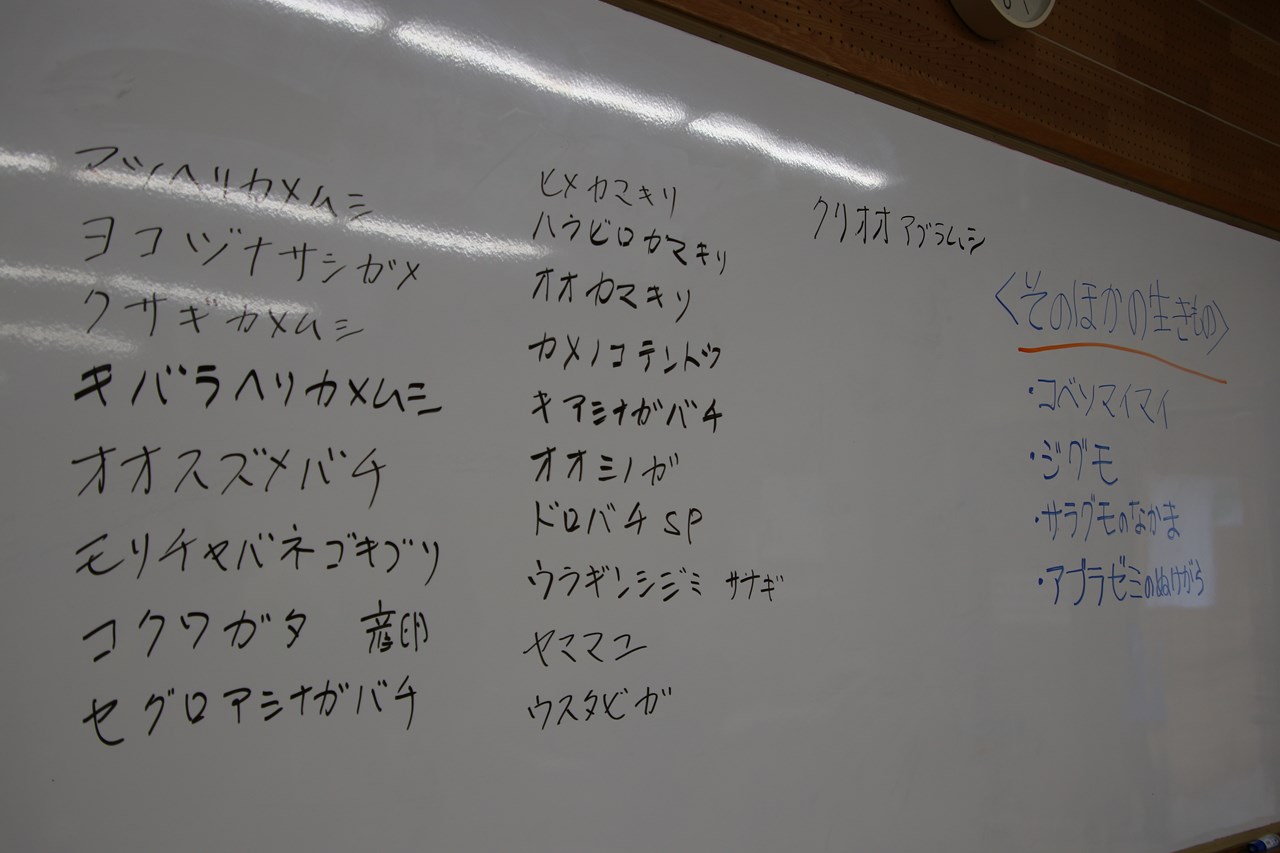 マツヘリカメムシ
ヨコヅナサシガメ
クサギカメムシ
キバラヘリカメムシ
オオスズメバチ
モリチャバネゴキブリ
コクワガタ 産卵
セグロアシナガバチ
ヒメカマキリ
ハラビロカマキリ
オオカマキリ
カメノコテントウ
キアシナガバチ
オオミノガ
ドロバチsp
ウラギンシジミ サナギ
ヤママユ
ウスタビガ
クリオオアブラムシ
<そのほかの生きもの>
・コベソマイマイ
・ジグモ
・サラグモのなかま
・アブラゼミのぬけがら